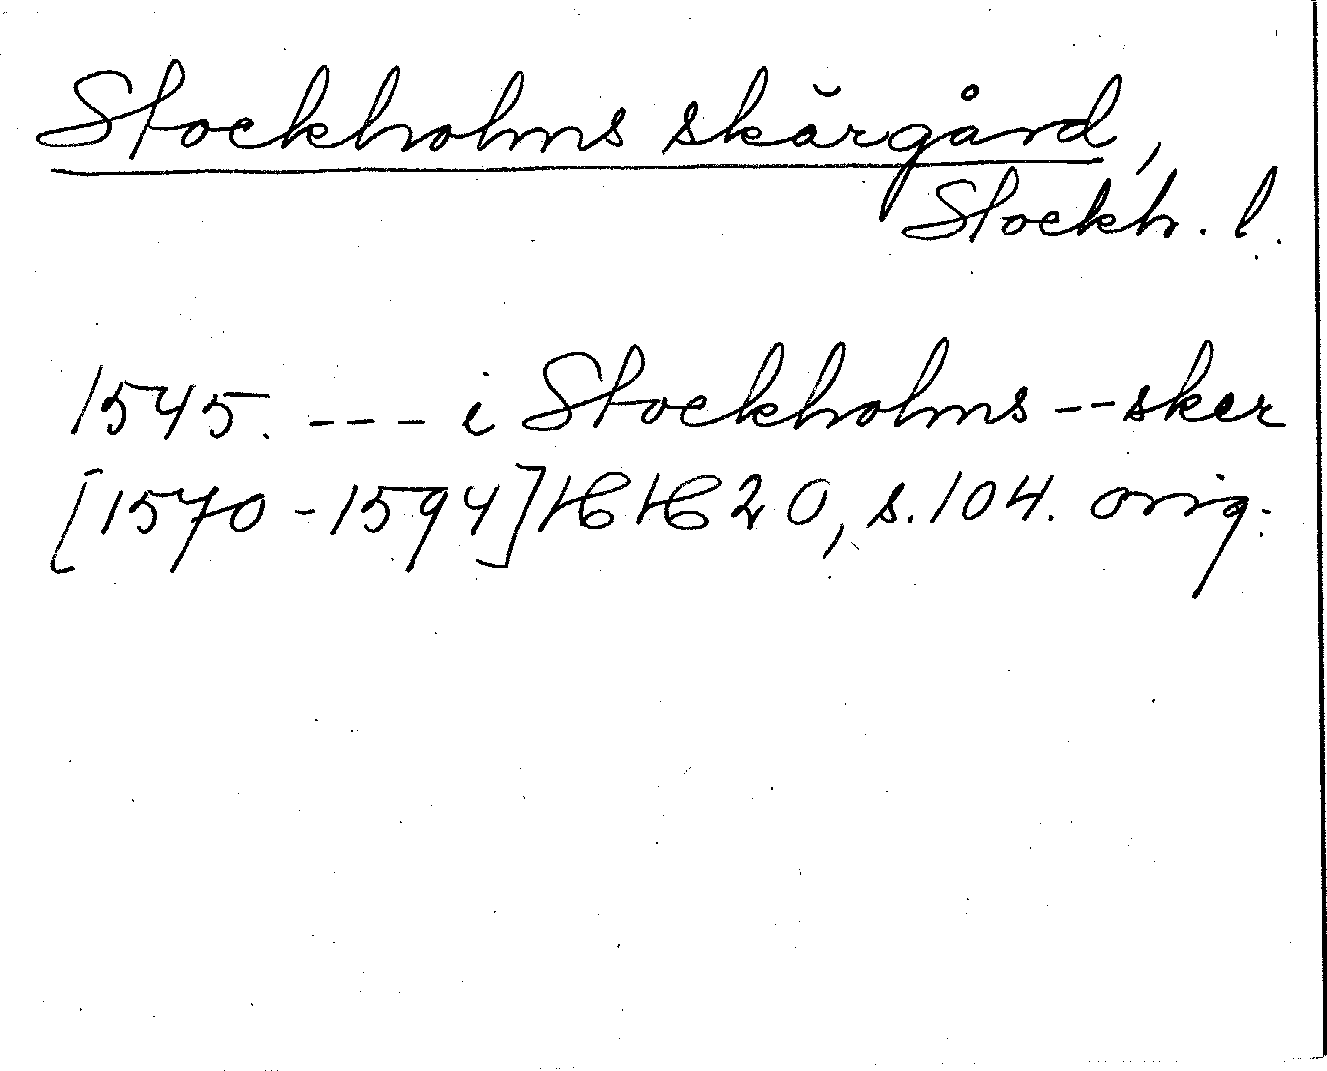 Stockholms skärgård,
Stockh. l.
1545. --- i Stockholms -- sker
[1570-1594] HH 20, s. 104. orig.